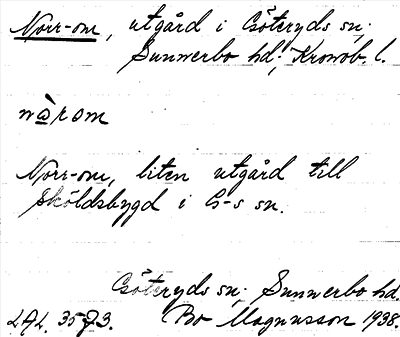 Norr-om, utgård i Göteryds sn;
Sunnerbo hd; Kronob. l.
nòrom
Norr-om, liten utgård till
Sköldsbygd i G-s sn.
Göteryds sn; Sunnerbo hd.
LAL. 3573. Bo Magnusson 1938.